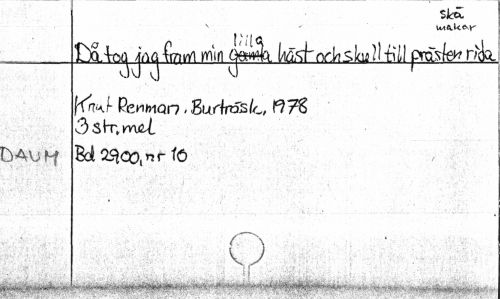 skä
makar
lilla
Då tog jag fram min gamla häst och skull till prästen rida
Knut Renman, Burträsk, 1978
3 str. mel
DAUM Bd 2900, nr 10